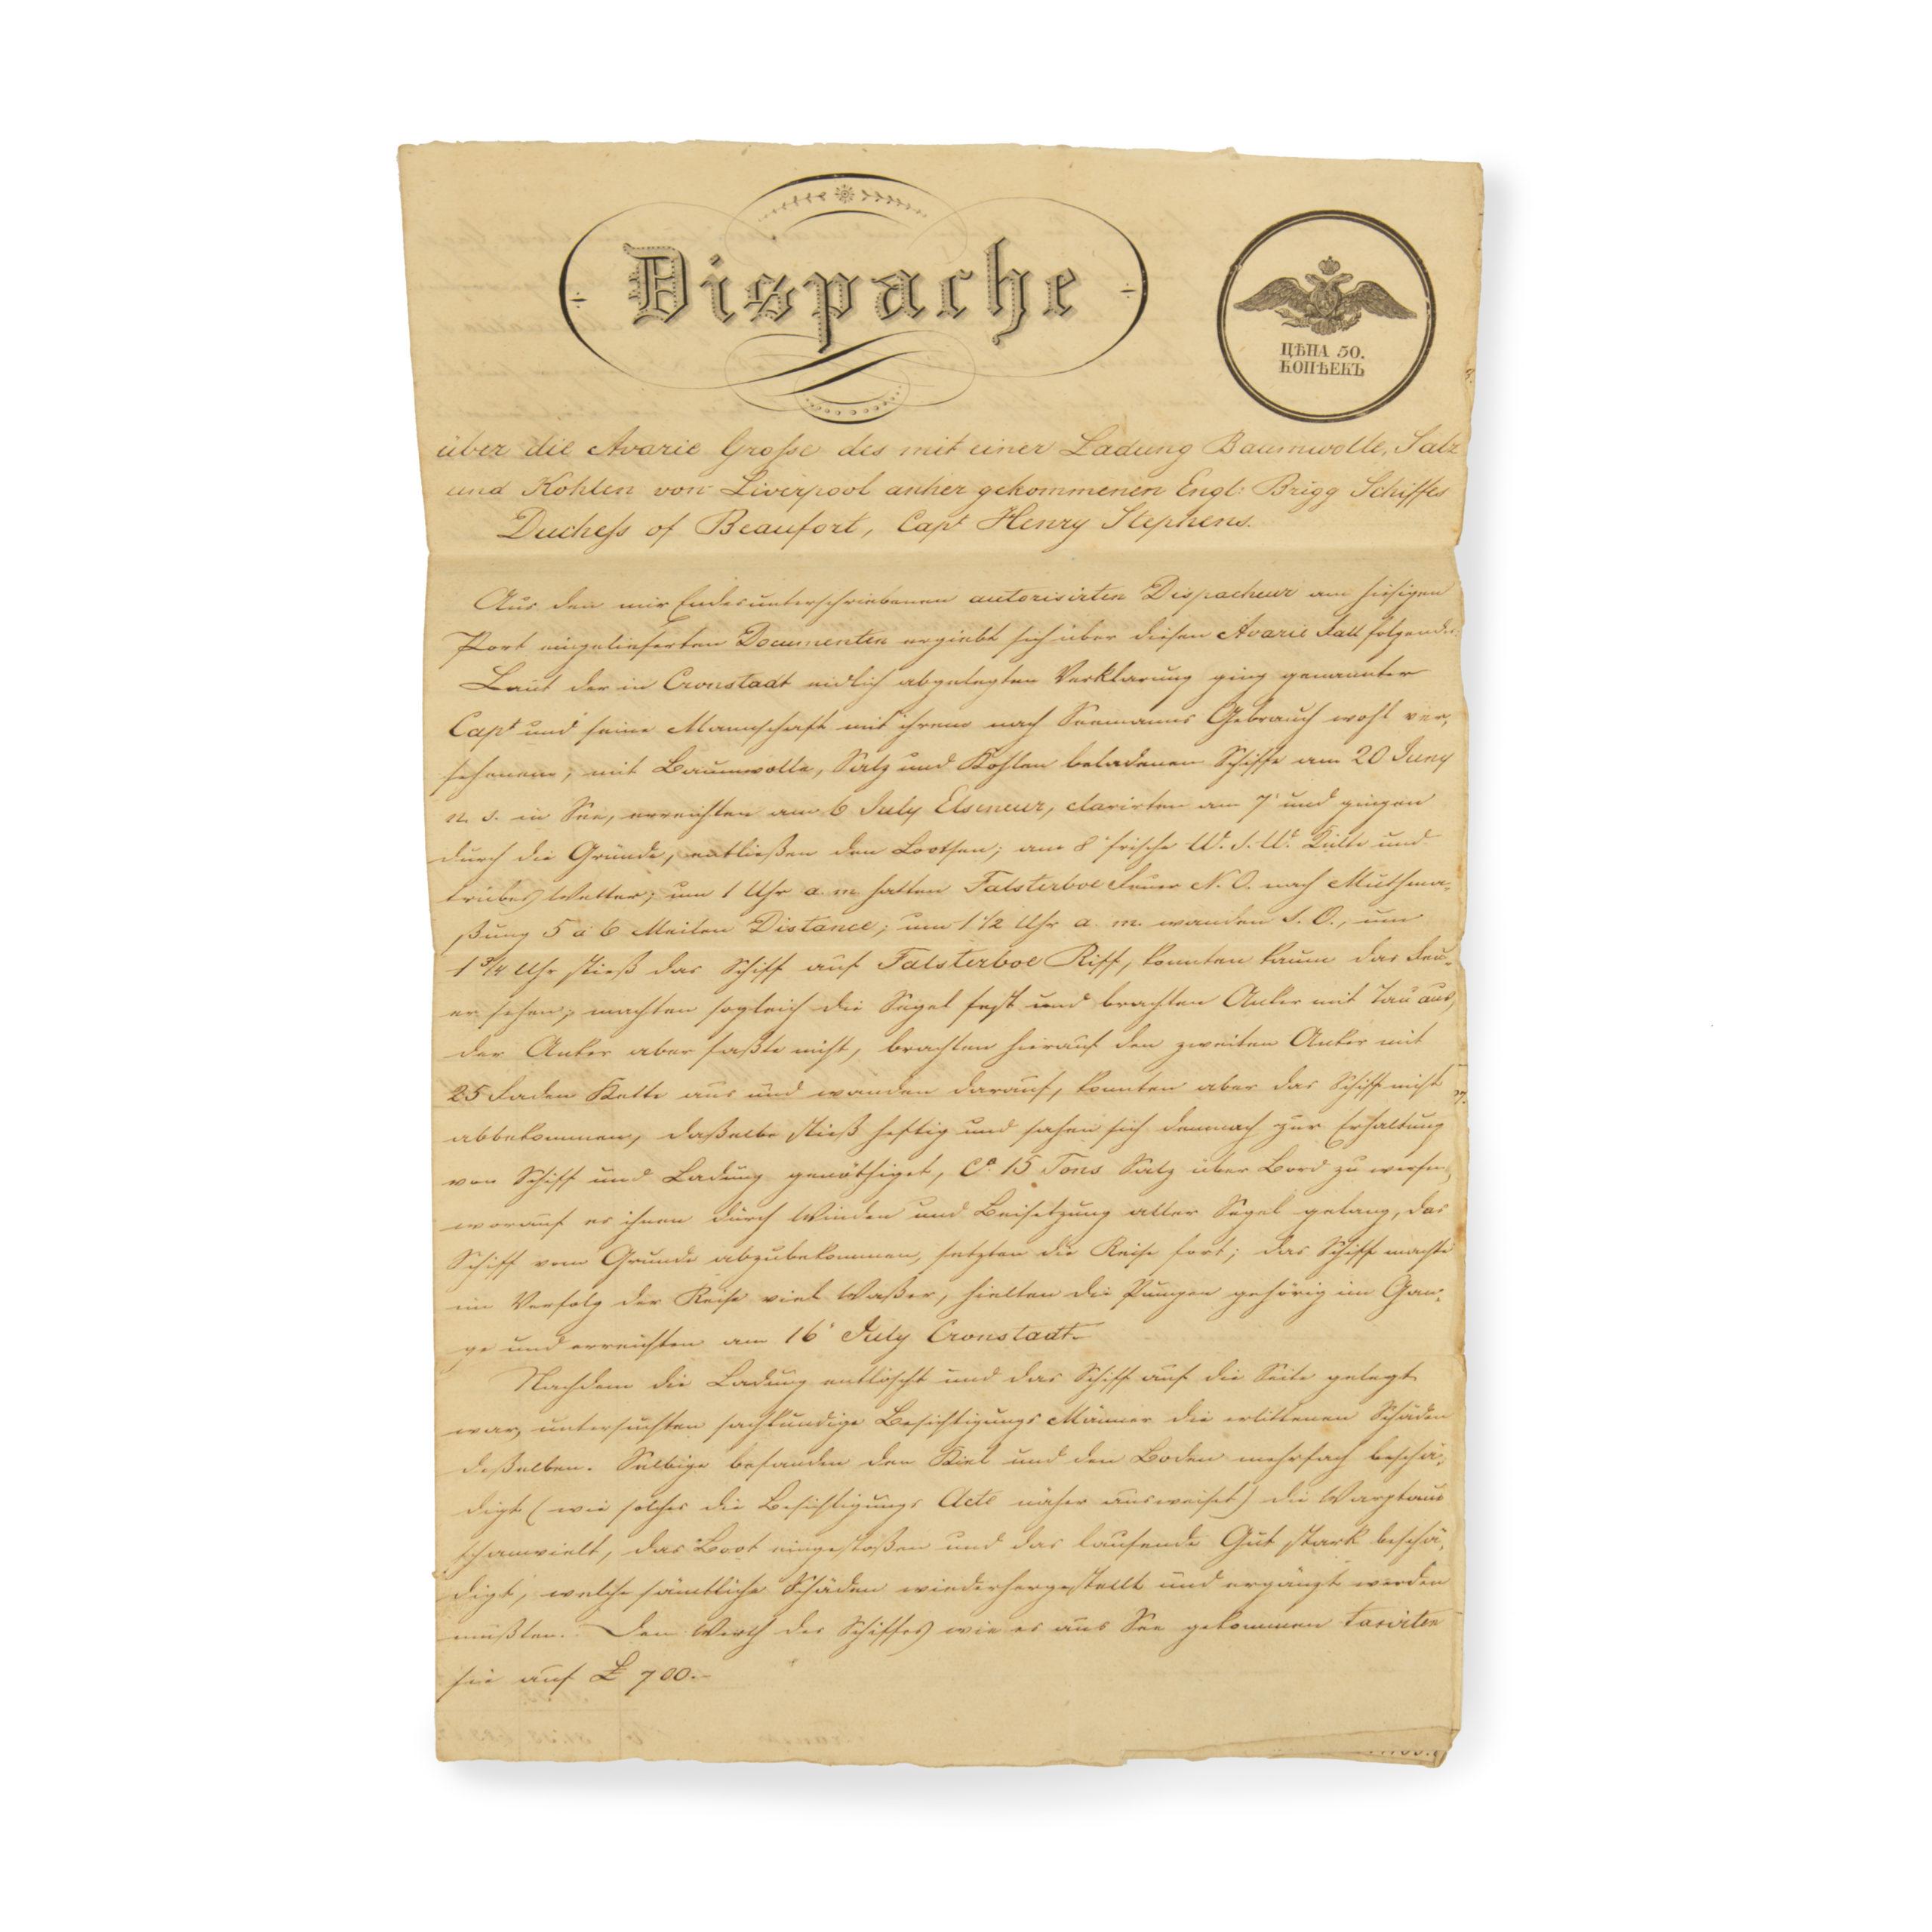 Dispache
ЦѢНА 50.
КОПѢЕКЪ
über die Avarie Große des mit einer Ladung Baumwolle, Salz
und Kohlen von Liverpool anher gekommenen Engl: Brigg Schiffes
Duchess of Beaufort, Capt Henry Stephens.
Aus den mir Endesunterschriebenen autorisirten Dispacheur am hiesigen
Port eingelieferten Documenten ergiebt sich über diesen Avarie Fall folgendes:
Laut der in Cronstadt eidlich abgelegten Verklarung ging genannter
Capt und seine Mannschaft mit ihrem nach Seemanns Gebrauch wohl ver-
sehenen, mit Baumwolle, Salz und Kohlen beladenen Schiffe am 20 Juny
n. S. in See, erreichten am 6 July Elseneur, clarirten am 7 und gingen
durch die Gründe, entließen den Lootsen; am 8 frische W. S. W. Külte und
trübes Wetter; um 1 Uhr a. m. hatten Falsterboe Feuer N. O. nach Muthma-
ßung 5 a 6 Meilen Distance; um 1 1/2 Uhr a. m. wanden S. O., um
1 3/4 Uhr stieß das Schiff auf Falsterboe Riff, konnten kaum das Feu-
er sehen; machten sogleich die Segel fest und brachten Anker mit Tau aus,
der Anker aber faßte nicht, brachten hierauf den zweiten Anker mit
25 Faden Kette aus und wanden darauf, konnten aber das Schiff nicht
abbekommen, daßelbe stieß heftig und sahen sich demnach zur Erhaltung
von Schiff und Ladung genöthiget, Ca 15 Tons Salz über Bord zu werfen,
worauf es ihnen durch Winden und Beisetzung aller Segel gelang, das
Schiff vom Grunde abzubekommen, setzten die Reise fort; das Schiff machte
im Verfolg der Reise viel Waßer, hielten die Pumpen gehörig im Gan-
ge und erreichten am 16 July Cronstadt.
Nachdem die Ladung entlöscht und das Schiff auf die Seite gelegt
war, untersuchten sachkundige Besichtigungs Männer die erlittenen Schäden
deßelben. Selbige befanden den Kiel und den Boden mehrfach beschä-
digt (wie solches die Besichtigungs Acte näher ausweiset) die Warptaue
schamvielt, das Boot eingestoßen und das laufende Gut stark beschä-
digt, welche sämtliche Schäden wiederhergestellt und ergänzt werden
mußten. Den Werth des Schiffes wie es aus See gekommen taxirten
sie auf £ 700.-